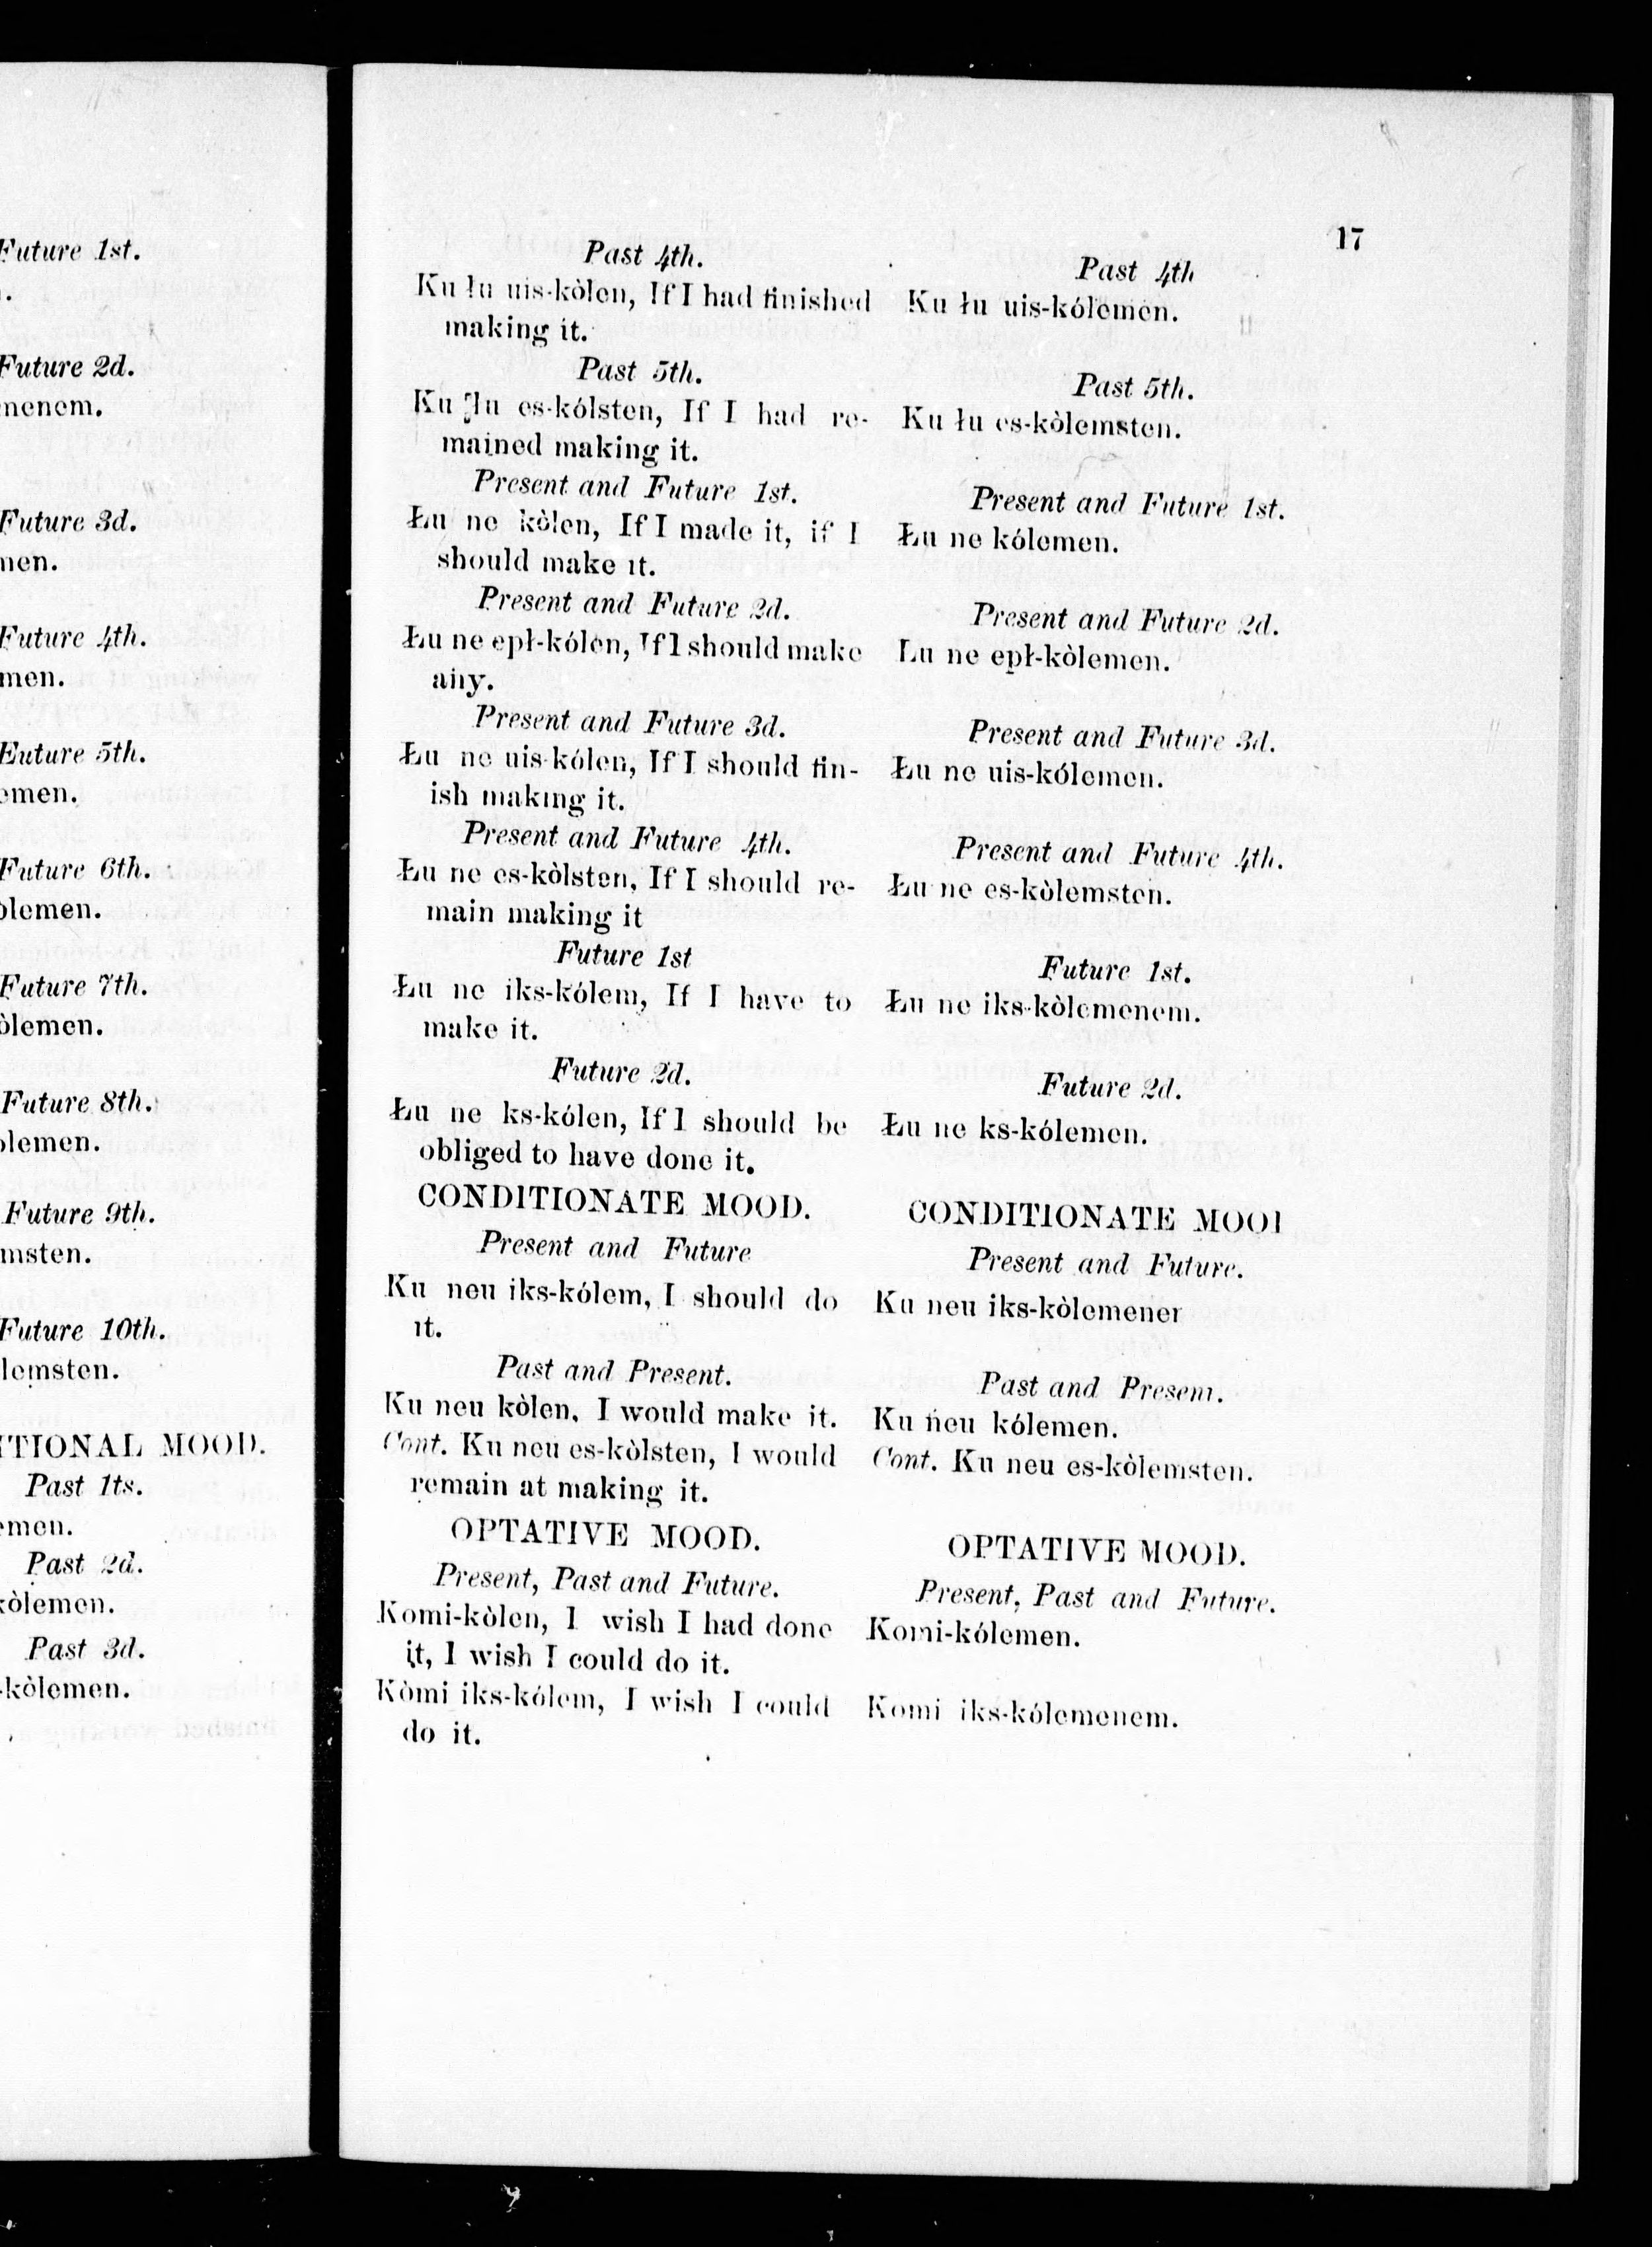 Future 1st.
Future 2d.
nenem.
Future 3d.
nen.
Future 4th.
men.
Euture 5th.
emen.
Future 6th.
olemen.
Future 7th.
òlemen.
Future 8th.
olemen.
Future 9th.
msten.
Future 10th.
lemsten.
ITIONAL MOOD.
Past 1ts.
emen.
Past 2d.
kòlemen.
Past 3d.
-kòlemen.
17
Past 4th.
Ku łu uis-kòlen, If I had finished
making it.
Past 5th.
Ku łu es-kólsten, If I had re-
mained making it.
Present and Future 1st.
Łu ne kòlen, If I made it, if I
should make it.
Present and Future 2d.
Łu ne epł-kólen, If I should make
any.
Present and Future 3d.
Łu ne uis-kólen, If I should fin-
ish making it.
Present and Future 4th.
Łu ne es-kòlsten, If I should re-
main making it
Future 1st
Łu ne iks-kólem, If I have to
make it.
Future 2d.
Łu ne ks-kólen, If I should be
obliged to have done it.
CONDITIONATE MOOD.
Present and Future
Ku neu iks-kólem, I should do
it.
Past and Present.
Ku neu kòlen, I would make it.
Cont. Ku neu es-kòlsten, I would
remain at making it.
OPTATIVE MOOD.
Present, Past and Future.
Komi-kòlen, I wish I had done
it, I wish I could do it.
Kòmi iks-kólem, I wish I could
do it.
Past 4th
Ku łu uis-kólemen.
Past 5th.
Ku łu es-kòlemsten.
Present and Future 1st.
Łu ne kólemen.
Present and Future 2d.
Lu ne epł-kòlemen.
Present and Future 3d.
Łu ne uis-kólemen.
Present and Future 4th.
Łu ne es-kòlemsten.
Future 1st.
Łu ne iks-kòlemenem.
Future 2d.
Łu ne ks-kólemen.
CONDITIONATE MOOI
Present and Future.
Ku neu iks-kòlemener
Past and Present.
Ku neu kólemen.
Cont. Ku neu es-kòlemsten.
OPTATIVE MOOD.
Present, Past and Future.
Komi-kólemen.
Komi iks-kólemenem.